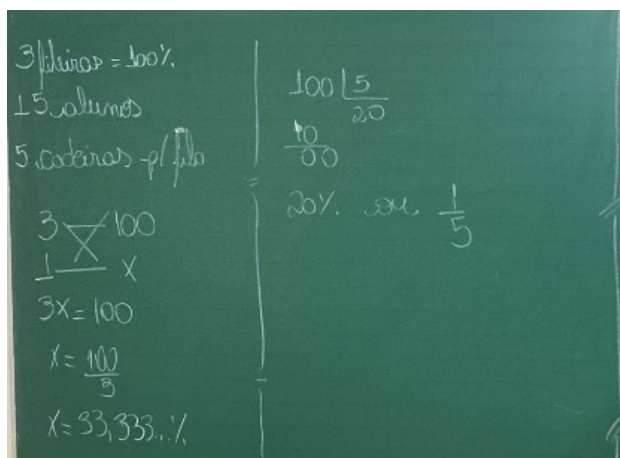 3 fileiras = 100%
15 alunos
5 cadeiras p/ fila
3 100
1 x
3x = 100
x = 100/3
x = 33,333..%
100 | 5
20
10
00
20% ou 1/5